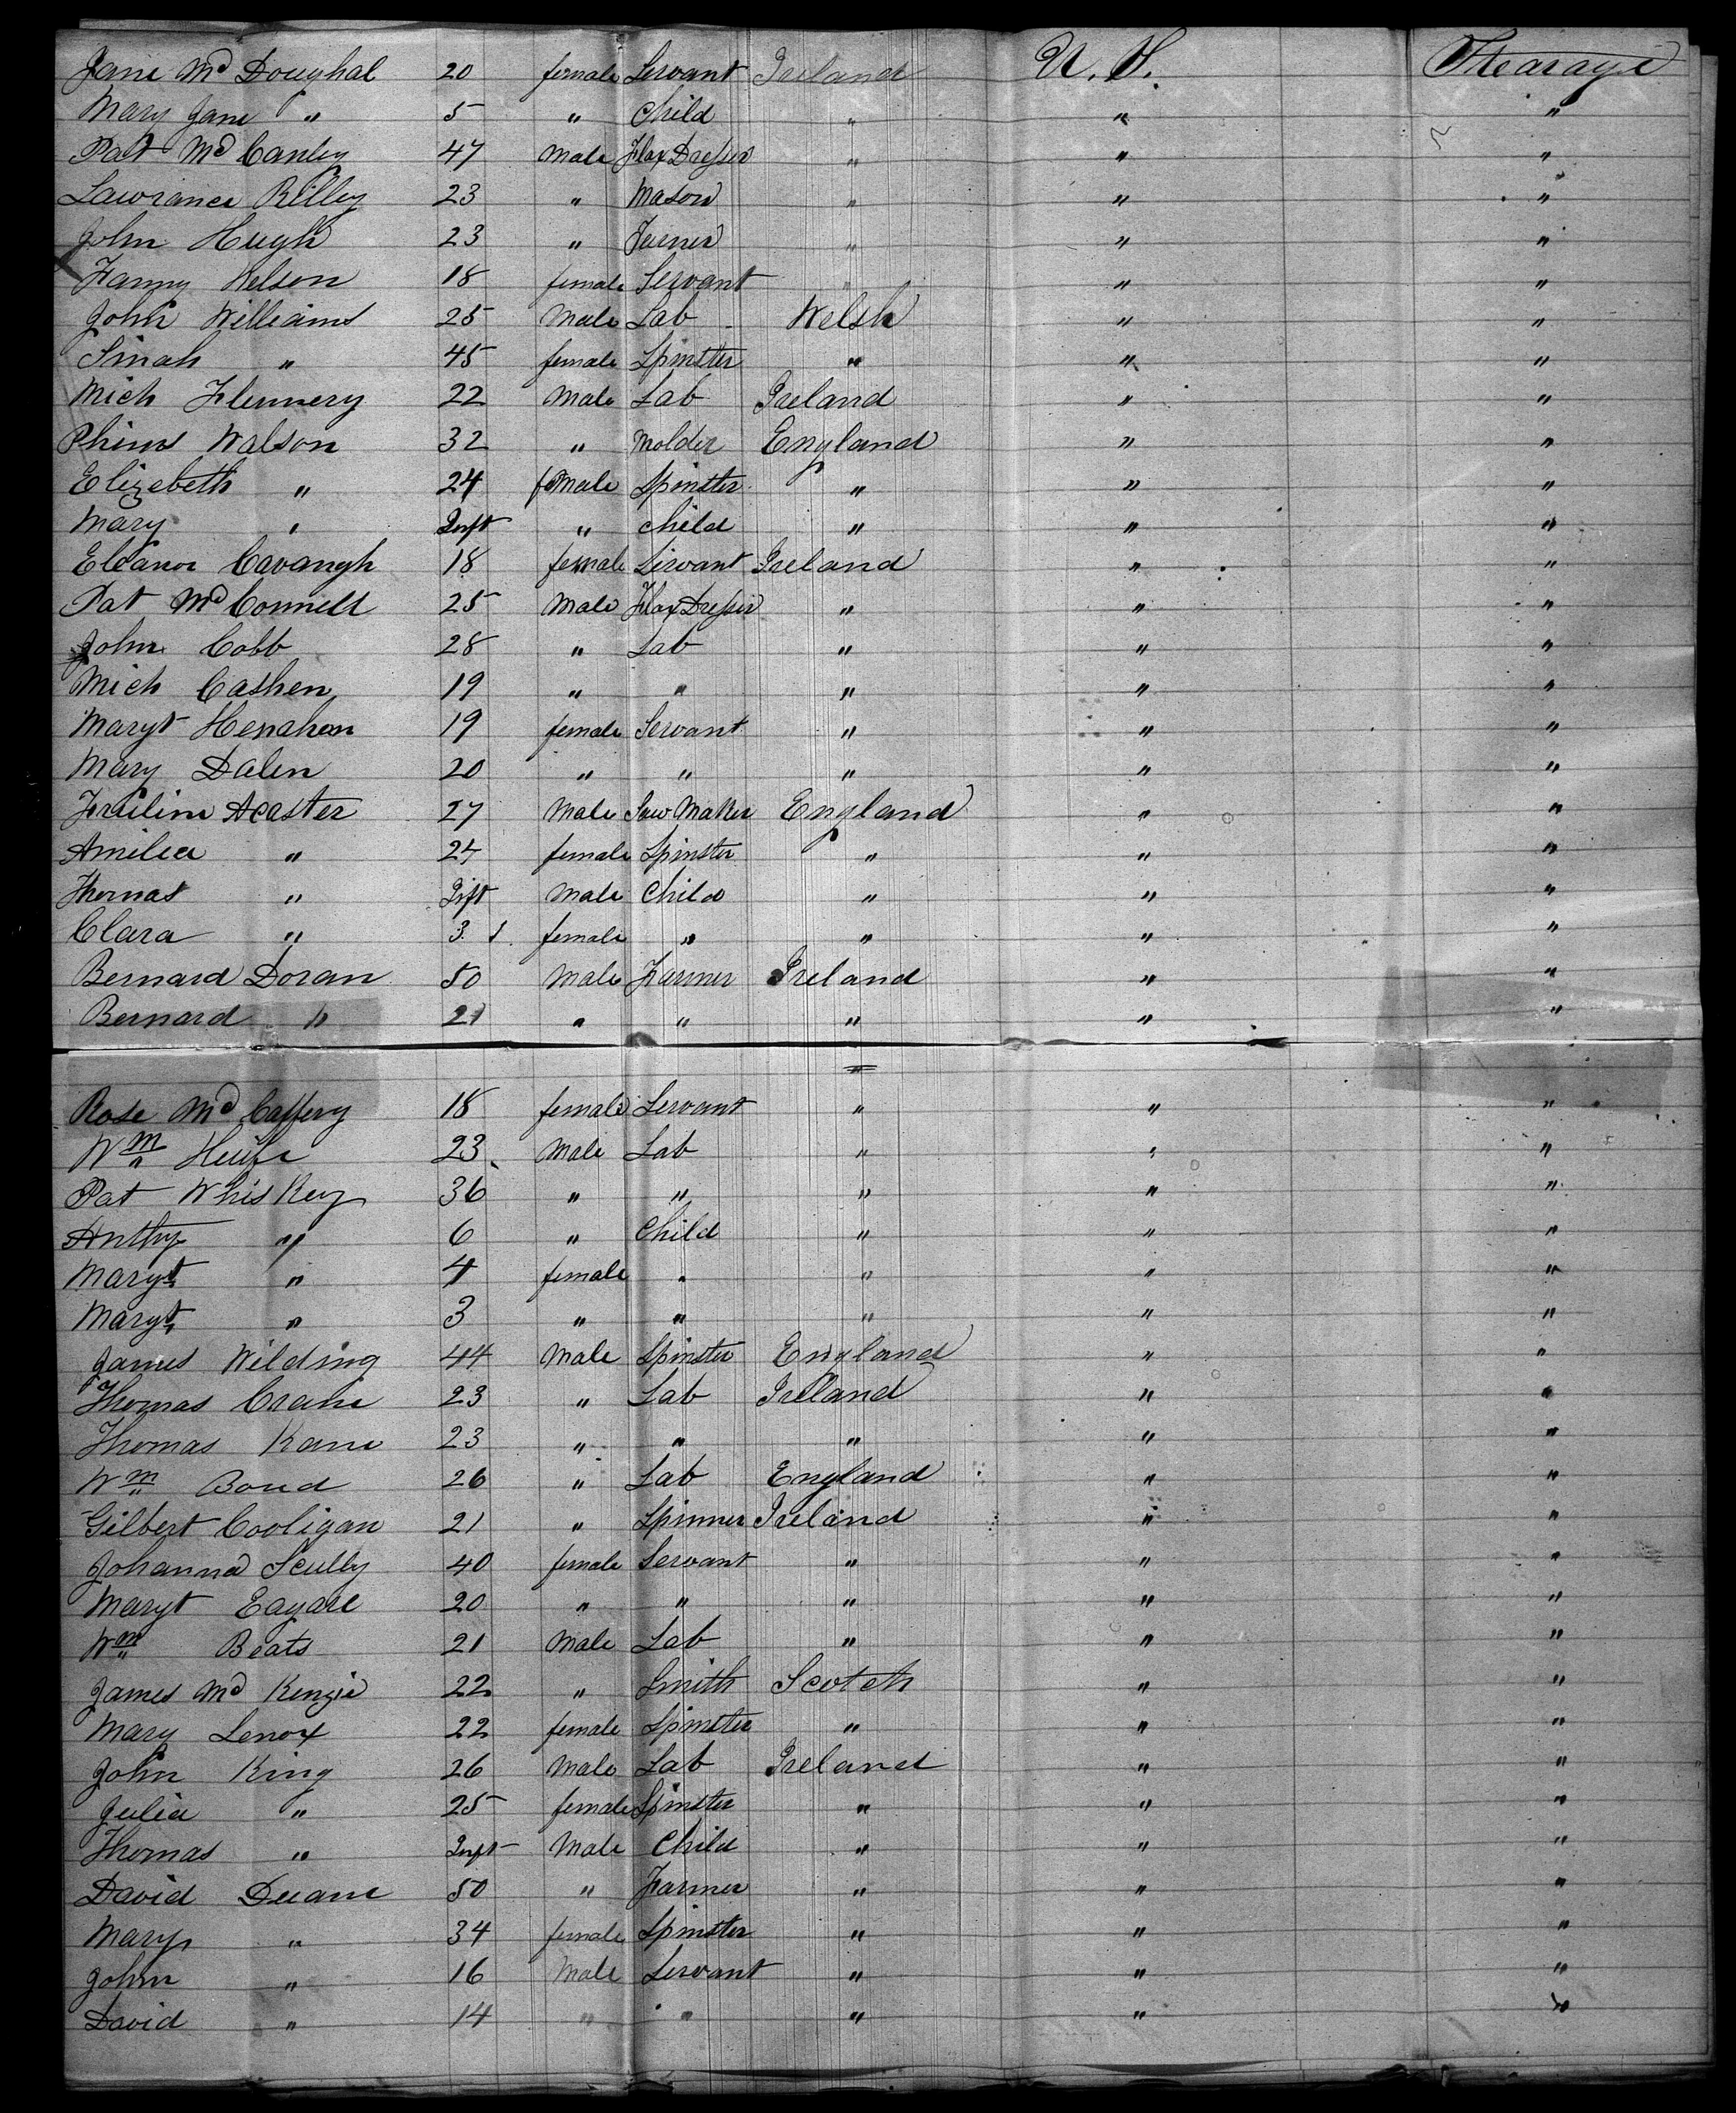 Jane Mc Doughal 20 female Servant Ireland U. S. Stearage
Mary Jane " 5 " Child " " "
Pat Mc Canley 47 Male Flax Dresser " " "
Lawrance Rilley 23 " Mason " " "
John Hugh 23 " Farmer " " "
Fanny Nelson 18 female Servant " " "
John Williams 25 Male Lab Welsh " "
Sinah " 45 female Spinster " " "
Mich Flennery 22 Male Lab Ireland " "
Walson 32 " Molder England " "
Elizebeth " 24 female Spinster " " "
Mary " Inft " child " " "
Eleanor Cavangh 18 female Servant Ireland " "
Pat Mc Connell 25 Male Flax Dresser " " "
John Cobb 28 " Lab " " "
Mich Cashen 19 " " " " "
Maryt Henahen 19 female Servant " " "
Mary Dalen 20 " " " " "
Acaster 27 Male Saw Maker England " "
Amilia " 24 female Spinster " " "
Thomas " Inft Male Child " " "
Clara " 3 female " " " "
Bernard Doran 50 Male Farmer Ireland " "
Bernard " 21 " " " " "
"
Rose Mc Caffery 18 female Servant " " "
Wm 23 Male Lab " " "
Pat Whiskey 36 " " " " "
Anthy " 6 " Child " " "
Maryt " 4 female " " " "
Maryt " 3 " " " " "
James Wilding 44 Male Spinster England " "
Thomas Crane 23 " Lab Ireland " "
Thomas Kane 23 " " " " "
Wm Bond 26 " Lab England " "
Gilbert Cooligan 21 " Spinner Ireland " "
Johanna Scully 40 female Servant " " "
Maryt Eagare 20 " " " " "
Wm Beats 21 Male Lab " " "
James Mc Kenzie 22 " Smith Scotch " "
Mary Lenox 22 female Spinster " " "
John King 26 Male Lab Ireland " "
Julia " 25 female Spinster " " "
Thomas " Inft Male Child " " "
David Duane 50 " Farmer " " "
Mary " 34 female Spinster " " "
John " 16 Male Servant " " "
David " 14 " " " " "